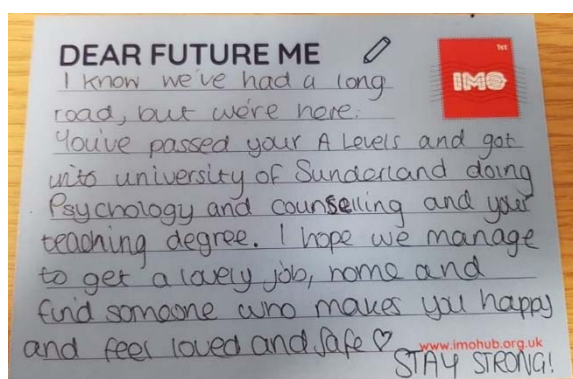 DEAR FUTURE ME
1st
IMO
I know we've had a long
road, but we're here.
You've passed your A Levels and got
into university of Sunderland doing
Psychology and counselling and your
teaching degree. I hope we manage
to get a lovely job, home and
find someone who makes you happy
and feel loved and safe ♡
www.imohub.org.uk
STAY STRONG!